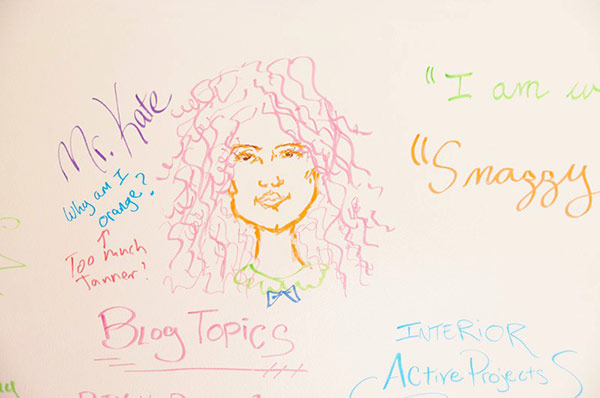 Mr. Kate
Why am I
orange?
Too much
tanner?
"I am
"Snaggy
BLOG TOPICS
INTERIOR
ACtive Projects